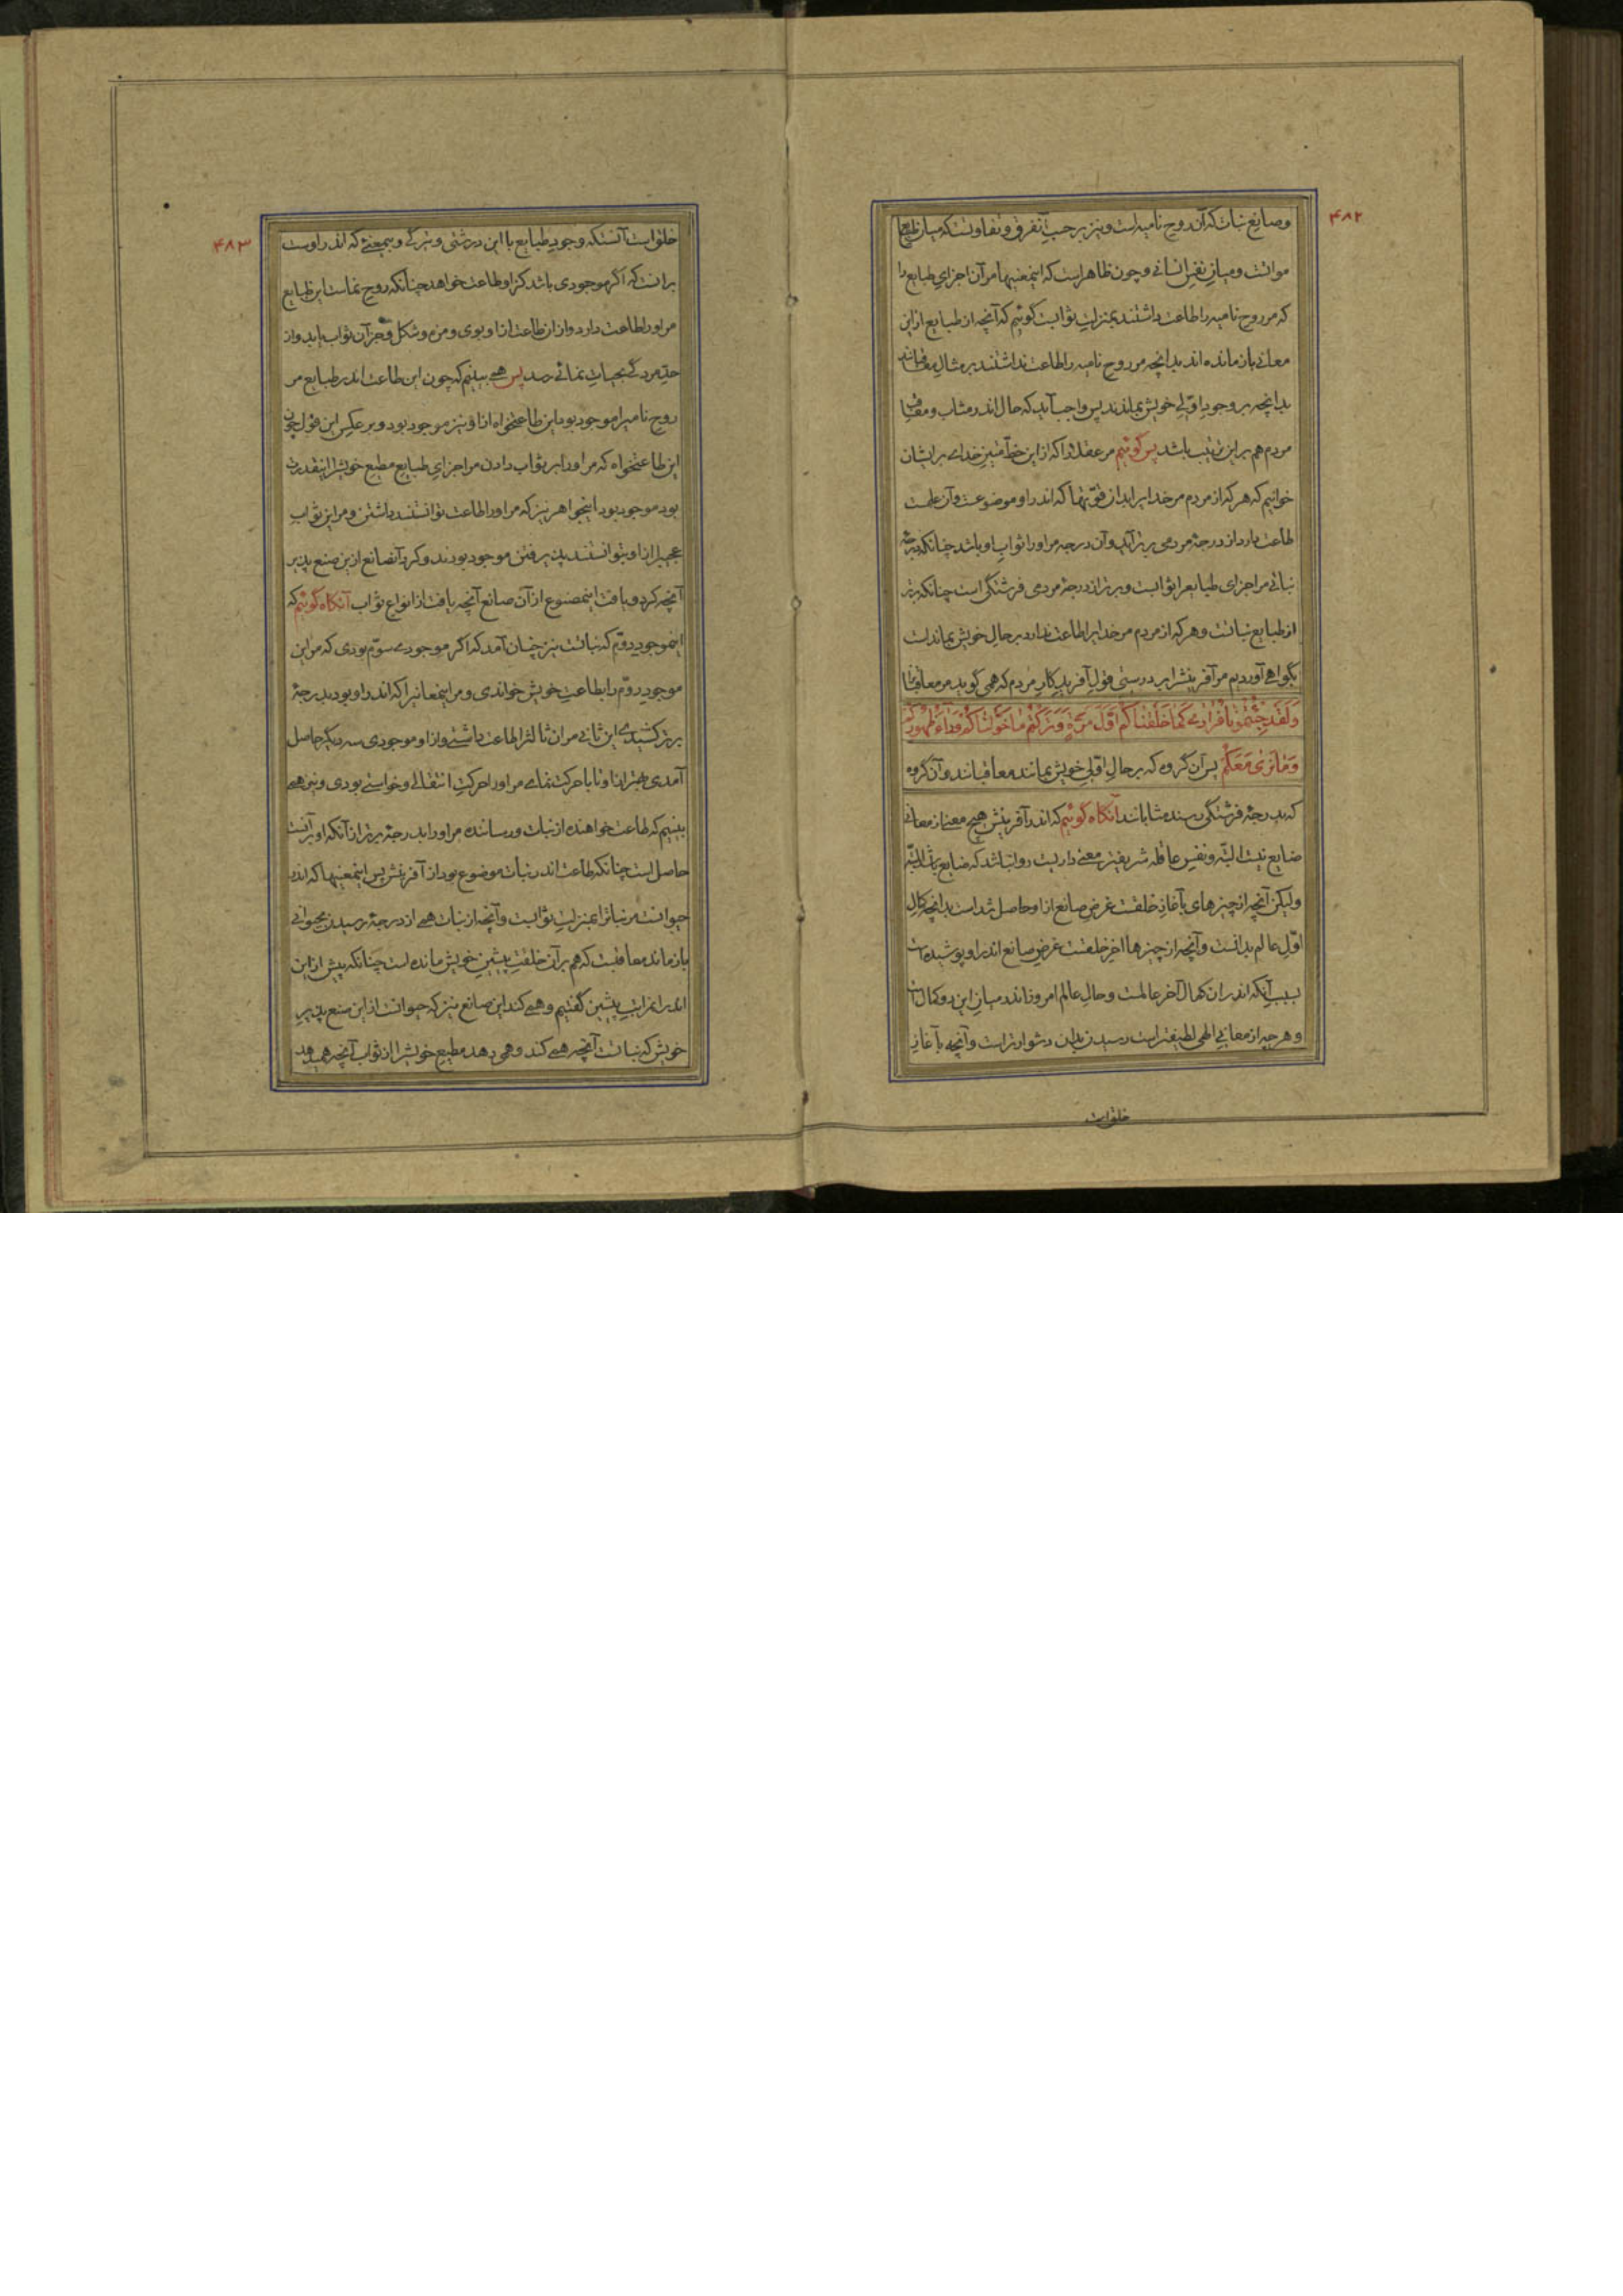 ۴۸۲
وصانع نبات که آن روح نامیه است و نیز بر حسب آن تفرق و تفاوتست که میان طبایع
مواتست و میان نفس انسانی و چون ظاهر است که این معنیها مر آن اجزای طبایع را
که مر روح نامیه را طاعت داشتند بمنزلت ثوابست گوئیم که آنچه از طبایع از این
معانی باز مانده اند بدانچه مر روح نامیه را طاعت نداشتند بر مثال معاقبانند
بدانچه بر وجود اولی خویش بماندند پس واجب آید که حال اندر مثاب و معاقب
مردم هم بر این ترتیب باشد پس گوئیم مر عقلا را که از این خط متین خدای بر ایشان
خوانیم که هر که از مردم مر خدایرا بدان قوتها که اندر او موضوعست و آن علمست
طاعت دارد از درجهٔ مردمی برتر آید و آن درجه مر اورا ثواب او باشد چنانکه درجهٔ
نباتی مر اجزای طبایع را ثوابست و برتر از درجهٔ مردمی فرشتگی است چنانکه برتر
از طبایع نباتست و هر که از مردم مر خدایرا طاعت ندارد بر حال خویش بماند است
بگواهی آوردیم مر آفرینش را بر درستی قول آفریدگار مردم که همی گوید مر معاقبانرا
وَلَقَد جِئتُمُونَا فُرَادَى کَمَا خَلَقنَاکُم اَوَّلَ مَرَّةٍ وَتَرَکتُم مَا خَوَّلنَاکُم وَرَاءَ ظُهُورِکُم
وَمَا نَرَى مَعَکُم پس آن گروه که بر حال اولی خویش بمانند معاقبانند و آن گروه
که بدرجهٔ فرشتگی رسند مثابانند آنکاه گوئیم که اندر آفرینش هیچ معنی از معانی
ضایع نیست البته و نفس عاقله شریفتر معنی داریست روا نباشد که ضایع باشد البته
ولیکن آنچه از چیزهای بآغاز خلقت غرض صانع از او حاصل شد است بدانچه کمال
اول عالم بدانست و آنچه از چیزها آخر خلقت غرض صانع اندر او پوشیده است
بسبب آنکه اندر ان کمال آخر عالمست و حال عالم امروز اندر میان این دو کمال است
و هر چه از معانی الهی لطیفتر است رسیدن بدان دشوارتر است و آنچه بآغاز
خلق است
۴۸۳
خلق است آنستکه وجود طبایع با این درشتی و تیرگی و بیمعنی که اندر اوست
برانست که اگر موجودی باشد کز او طاعت خواهد چنانکه روح نماست این طبایع
مر اورا طاعت دارد و از ان طاعت از او بوی و مزه و شکل و جز آن ثواب یابد و از
حد مردگی بحیات نمائی رسد پس همی بینیم که چون این طاعت اندر طبایع مر
روح نامیرا موجود بود این طاعتخواه از او نیز موجود بود و بر عکس این قول چون
این طاعتخواه که مر اورا بر ثواب دادن مر اجزای طبایع مطیع خویشرا اینقدرت
بود موجود بود اینجواهر نیز که مر اورا طاعت توانستند داشتن و مر این ثواب
عجیبرا از او بتوانستند پذیرفتن موجود بودند و کرد آنصانع از این صنع پذیر
آنچه کرد و یافت اینمصنوع از آن صانع آنچه یافت از انواع ثواب آنکاه گوئیم که
اینموجود دوم که نباتست نیز چنان آمد که اگر موجودی سوم بودی که مر این
موجود دوم را بطاعت خویش خواندی و مر اینمعانیرا که اندر او بود بدرجهٔ
برتر کشیدی این ثانی مر ان ثالثرا طاعت داشتی و از او موجودی سه دیگر حاصل
آمدی بهتر از او تا با حرکت نمای مر اورا حرکت انتقالی و خواستی بودی و نیز همی
بینیم که طاعت خواهنده از نبات و رساننده مر اورا بدرجهٔ برتر از آنکه او بر آنست
حاصل است چنانکه طاعت اندر نبات موضوع بود از آفرینش پس اینمعنیها که اندر
حیوانست مر نباترا بمنزلت ثوابست و آنچه از نبات همی از درجهٔ رسیدن بحیوانی
باز ماند معاقبست که هم بر آن خلقت پیشین خویش مانده است چنانکه پیش از این
اندر مراتب پیشین گفتیم و همی کند این صانع نیز که حیوانست از این صنع پذیر
خویش که نباتست آنچه همی کند و همی دهد مطیع خویشرا از ثواب آنچه همی دهد